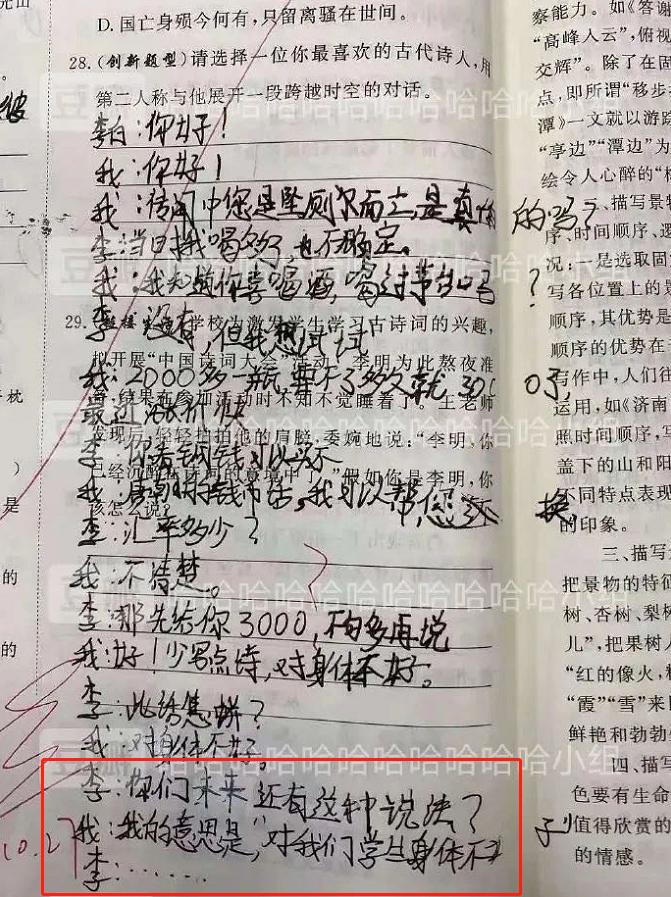 D. 国亡身殒今何有，只留离骚在世间。
28.（创新题型）请选择一位你最喜欢的古代诗人，用
第二人称与他展开一段跨越时空的对话。
李白：你好！
我：你好！
我：传闻中您是坠厕尔而亡，是真的 的吗？
李：当日我喝多了，也不确定。
我：我知道你喜喝酒，喝过茅台吗？
李：没有，但我想试试
29. 学校为激发学生学习古诗词的兴趣，
拟开展“中国诗词大会”活动，李明为此熬夜准
我：2000多一瓶，要不了多久就30 0了，
结果在参加活动时不知不觉睡着了。王老师
最近涨价快
发现，轻轻拍拍他的肩膀，委婉地说：“李明，你
李：
已经沉醉在诗词的意境中了。”假如你是李明，你
我：唐朝的钱 的话，我可以帮您 换。
该怎么说？
李：汇率多少？
我：不清楚。
李：那先给你3000，不够多再说
我：好！少写点诗，对身体不好。
李：此话怎讲？
我：对身体不好。
李：你们未来还有这种说法？
我：我的意思是“对我们学生身体不
李：……
10.27
察能力。如《答谢
“高峰入云”，俯视
交辉”。除了在固
点，即所谓“移步
潭》一文就以游踪
“亭边”“潭边”为
绘令人心醉的“
二、描写景物
序、时间顺序、逻
况：一是选取固
写各位置上的景
顺序，其优势是
顺序的优势在于
写作中，人们往
运用，如《济南
照时间顺序，写
盖下的山和阳
不同特点表现
的印象。
三、描写
把景物的特征
树、杏树、梨树
儿”，把果树人
“红的像火，粉
“霞”“雪”来
鲜艳和勃勃
四、描写
色要有生命
值得欣赏的
的情感。